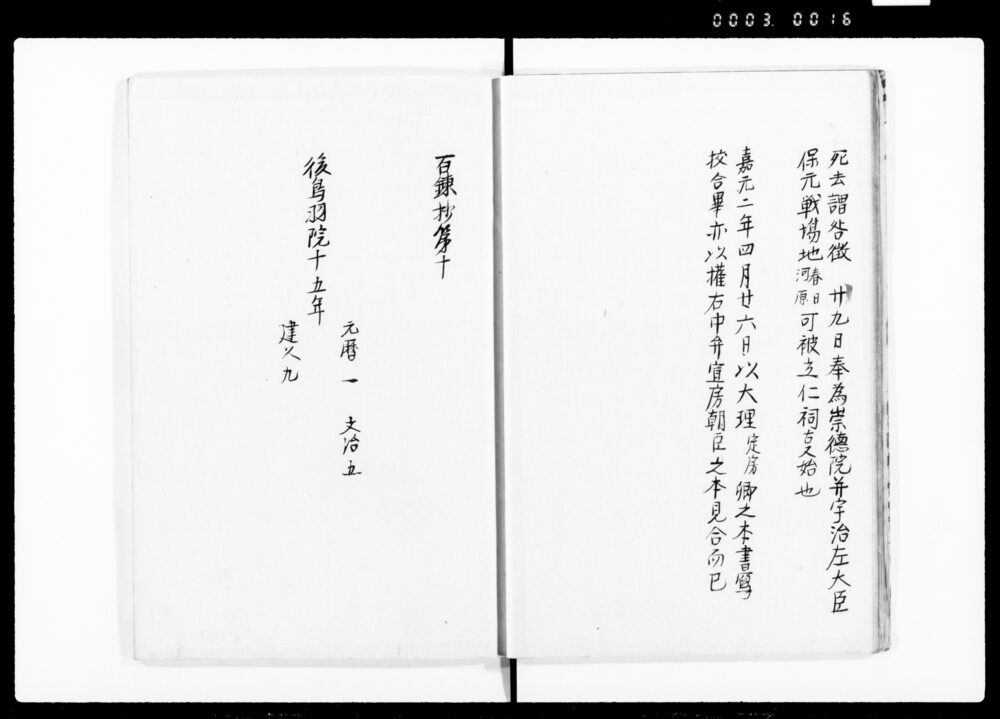 0003 0016
死去謂咎徴　廿九日奉為崇徳院并宇治左大臣
保元戦場地春日河原可被立仁祠事始也
嘉元二年四月廿六日以大理定房卿之本書写
校合畢亦以権右中弁宣房朝臣之本見合而已
百錬抄第十
後鳥羽院十五年
元暦一　文治五
建久九